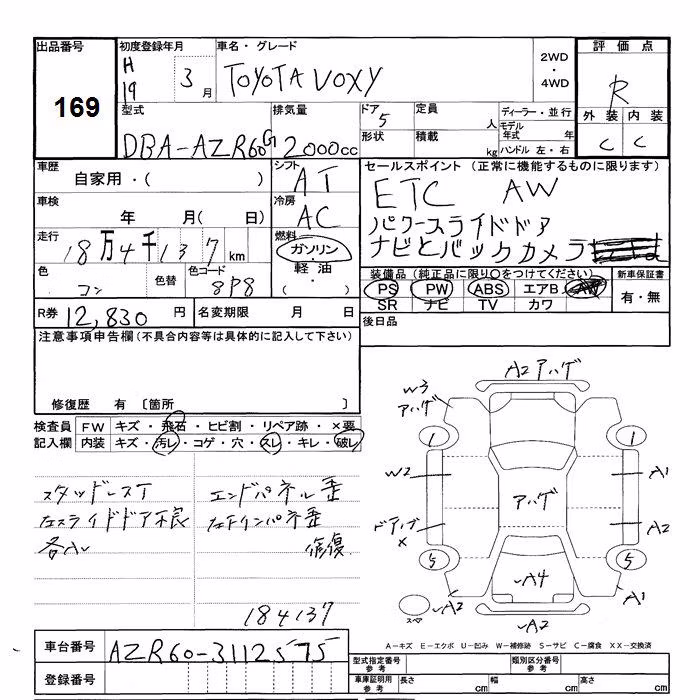 出品番号 初度登録年月 車名・グレード 2WD ・ 4WD 評価点
169 H19 3月 TOYOTA VOXY R
型式 排気量 ドア 定員 ディーラー・並行 外装 内装
DBA-AZR60G 2000cc 5 人 モデル年式 年 C C
形状 積載 kg ハンドル 左・右
車歴 シフト セールスポイント (正常に機能するものに限ります)
自家用・( ) AT ETC AW
車検 冷房 パワースライドドア
年 月( 日) AC ナビとバックカメラ
走行 燃料
18万4千137km ガソリン・軽油・( )
色 色替 色コード 装備品(純正品に限り○をつけてください) 新車保証書
コン 8P8 PS PW ABS エアB AW 有・無
SR ナビ TV カワ
R券 12,830円 名変期限 月 日 後日品
注意事項申告欄(不具合内容等は具体的に記入して下さい)
修復歴 有 〔箇所 〕
検査員 FW キズ・飛石・ヒビ割・リペア跡・×要
記入欄 内装 キズ・汚レ・コゲ・穴・スレ・キレ・破レ
スタッドレスT エンドパネル歪
左スライドドア不良 左下インパネ歪
各ハ 修復
184137
A2 アハゲ
W3 アハゲ
1 1
W2 A1
アハゲ
ドアハゲ × A2
5 5
A4
スペア A2 A1
A2
A-キズ E-エクボ U-凹み W-補修跡 S-サビ C-腐食 XX-交換済
車台番号 AZR60-3112575
登録番号
型式指定番号 参考 類別区分番号 参考
車庫証明用 参考 長さ cm 幅 cm 高さ cm